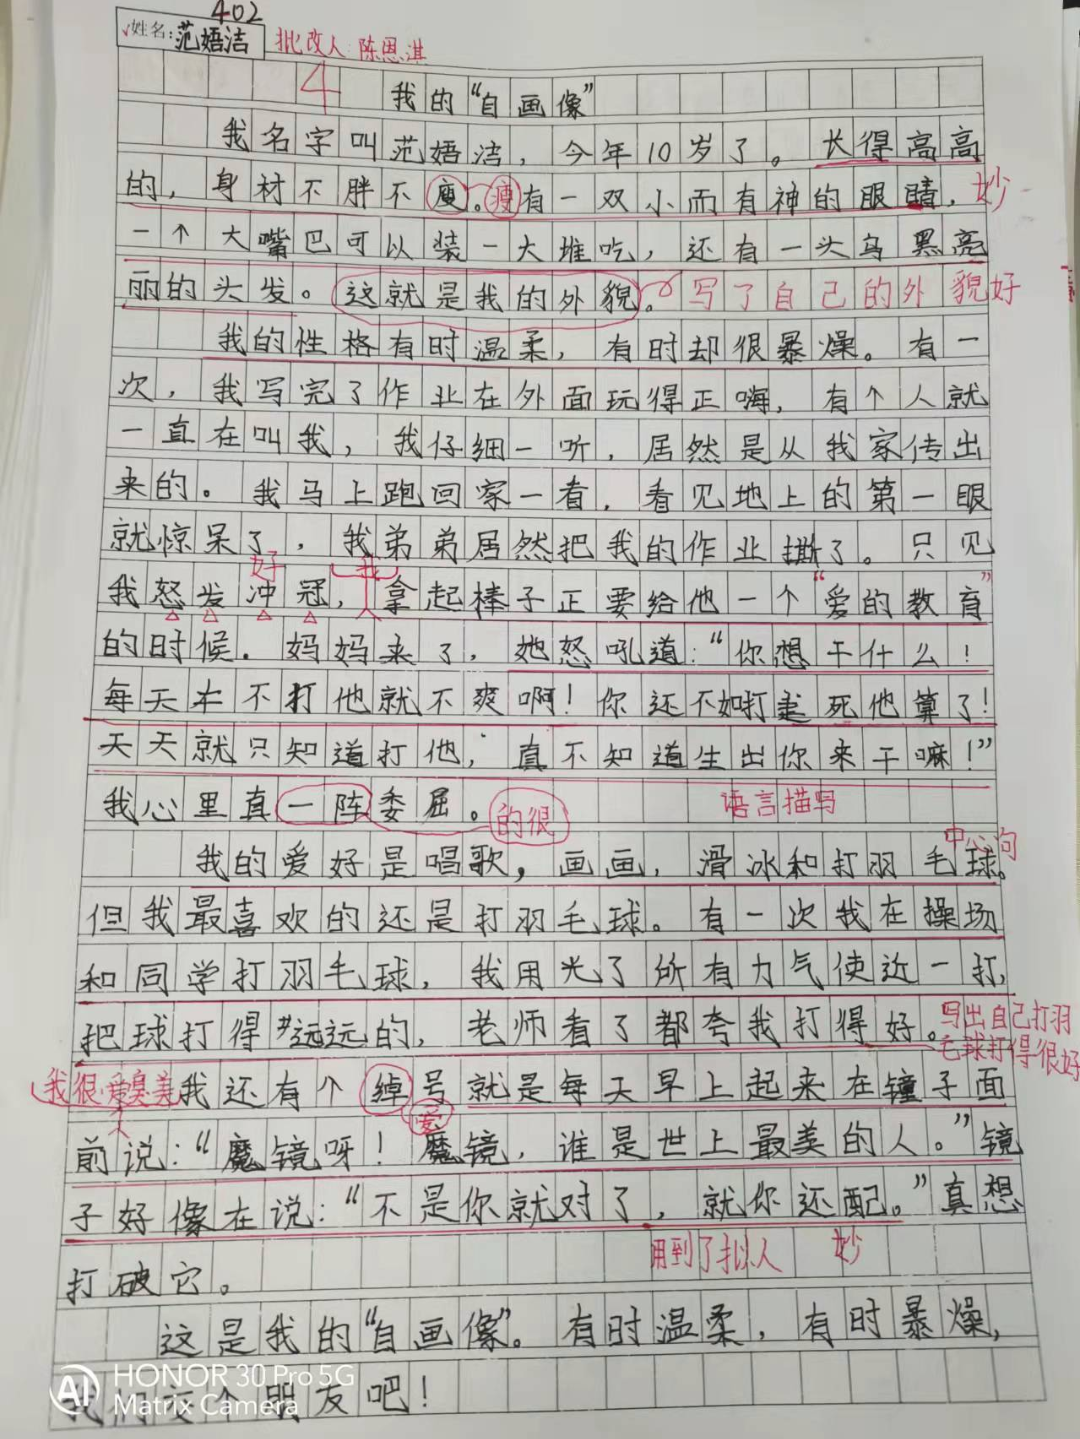 402
姓名:范娪洁 批改人:陈恩淇
4 我的“自画像”
我名字叫范娪洁，今年10岁了。长得高高
的，身材不胖不瘦。瘦有一双小而有神的眼睛，妙
一个大嘴巴可以装一大堆吃，还有一头乌黑亮
丽的头发。这就是我的外貌。写了自己的外貌好
我的性格有时温柔，有时却很暴燥。有一
次，我写完了作业在外面玩得正嗨，有个人就
一直在叫我，我仔细一听，居然是从我家传出
来的。我马上跑回家一看，看见地上的第一眼
就惊呆了，我弟弟居然把我的作业撕了。只见
好 我
我怒发冲冠，拿起棒子正要给他一个“爱的教育”
的时候。妈妈来了，她怒吼道：“你想干什么！
每天不打他就不爽啊！你还不如打死他算了！
天天就只知道打他，真不知道生出你来干嘛！”
我心里真一阵委屈。的很 语言描写
中心句
我的爱好是唱歌，画画，滑冰和打羽毛球。
但我最喜欢的还是打羽毛球。有一次我在操场
和同学打羽毛球，我用光了所有力气使近一打，
把球打得远远的，老师看了都夸我打得好。写出自己打羽
毛球打得很好
我很爱臭美我还有个绰号就是每天早上起来在镜子面
爱
前说：“魔镜呀！魔镜，谁是世上最美的人。”镜
子好像在说：“不是你就对了，就你还配。”真想
用到了拟人 妙
打破它。
这是我的“自画像”。有时温柔，有时暴燥，
我们交个朋友吧！
HONOR 30 Pro 5G
Matrix Camera